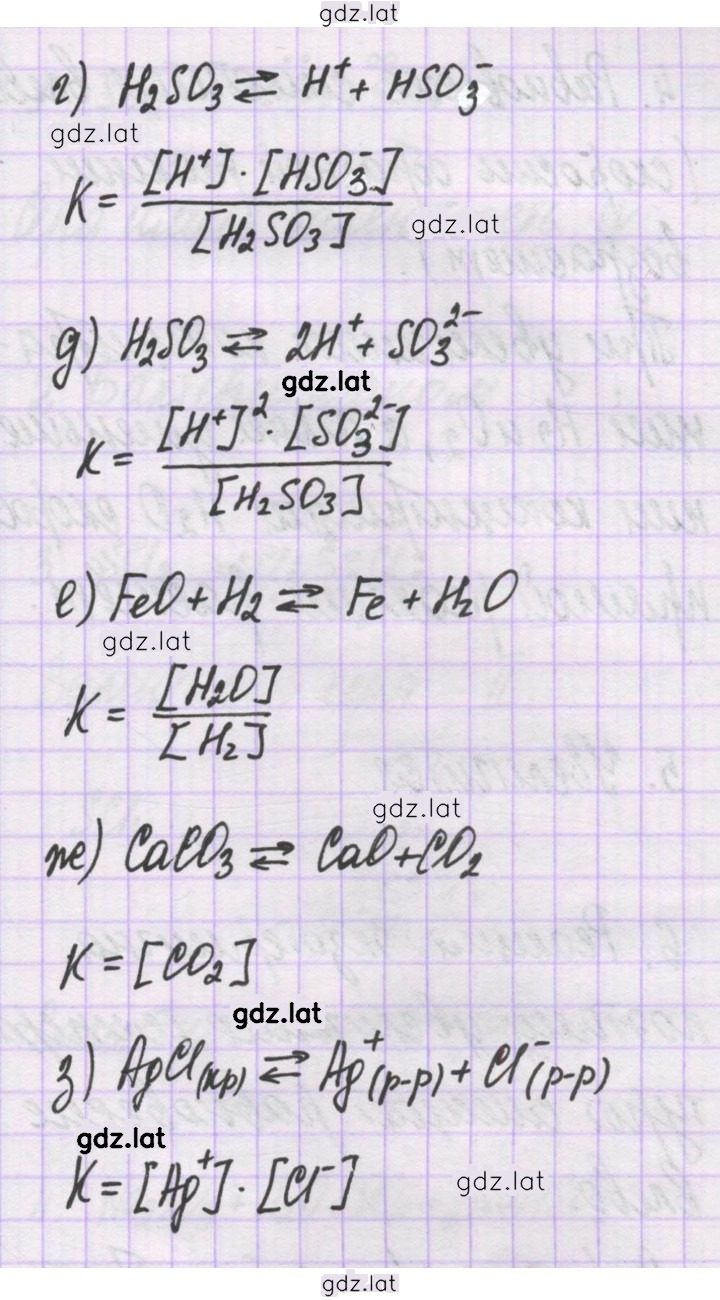 gdz.lat
г) H₂SO₃ ⇄ H⁺ + HSO₃⁻
gdz.lat
K = [H⁺]·[HSO₃⁻] / [H₂SO₃]
gdz.lat
д) H₂SO₃ ⇄ 2H⁺ + SO₃²⁻
gdz.lat
K = [H⁺]²·[SO₃²⁻] / [H₂SO₃]
е) FeO + H₂ ⇄ Fe + H₂O
gdz.lat
K = [H₂O] / [H₂]
gdz.lat
ж) CaCO₃ ⇄ CaO + CO₂
K = [CO₂]
gdz.lat
з) AgCl(кр) ⇄ Ag⁺(р-р) + Cl⁻(р-р)
gdz.lat
K = [Ag⁺]·[Cl⁻]
gdz.lat
gdz.lat